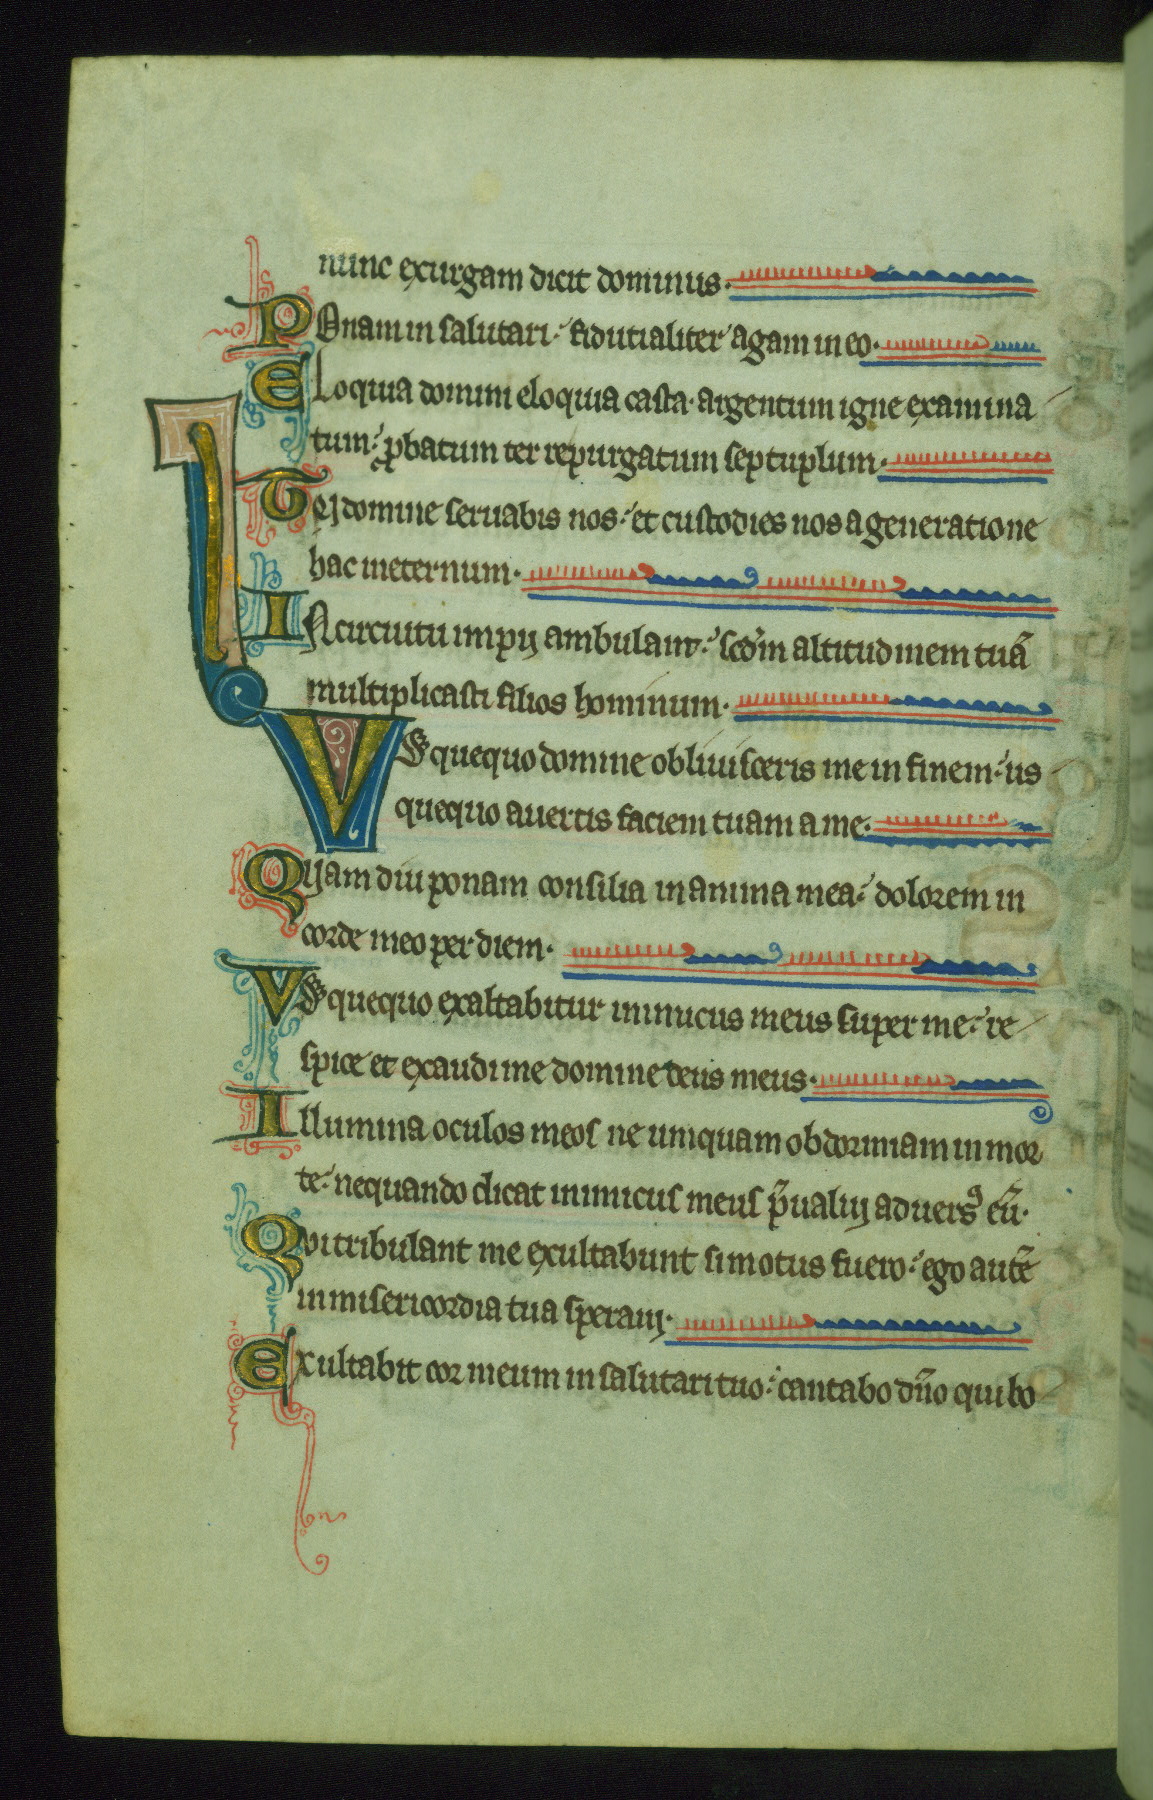 nunc exurgam dicit dominus.
POnam in salutari: fidutialiter agam in eo.
Eloquia domini eloquia casta. argentum igne examina
tum: ꝓbatum ter repurgatum septuplum.
TU domine seruabis nos: et custodies nos a generatione
hac in eternum.
IN circuitu impij ambulant: scd̄m altitudinem tuā
multiplicasti filios hominum.
VSquequo domine obliuisceris me in finem: us
quequo auertis faciem tuam a me.
QUam diu ponam consilia in anima mea: dolorem in
corde meo per diem.
VSquequo exaltabitur inimicus meus super me: re
spice et exaudi me domine deus meus.
Illumina oculos meos ne umquam obdormiam in mor
te: nequando dicat inimicus meus p̄ualui aduersꝰ eū.
Qui tribulant me exultabunt si motus fuero: ego autē
in misericordia tua speraui.
Exultabit cor meum in salutari tuo: cantabo dn̄o qui bo